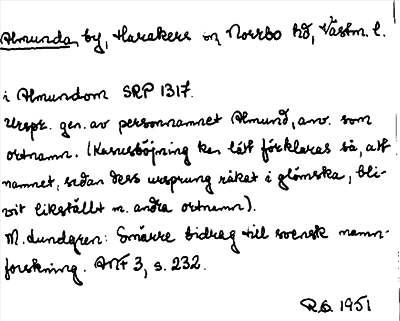 Almunda, by, Harakers sn, Norrbo hd, Västm. l.
i Almundom SRP 1317.
Urspr. gen. av personnamnet Almund, anv. som
ortnamn. (Kasusböjning kan lätt förklaras så, att
namnet, sedan dess ursprung råkat i glömska, bli-
vit likställt m. andra ortnamn).
M. Lundgren: Smärre bidrag till svensk namn-
forskning. ANF 3, s. 232.
R.O. 1951